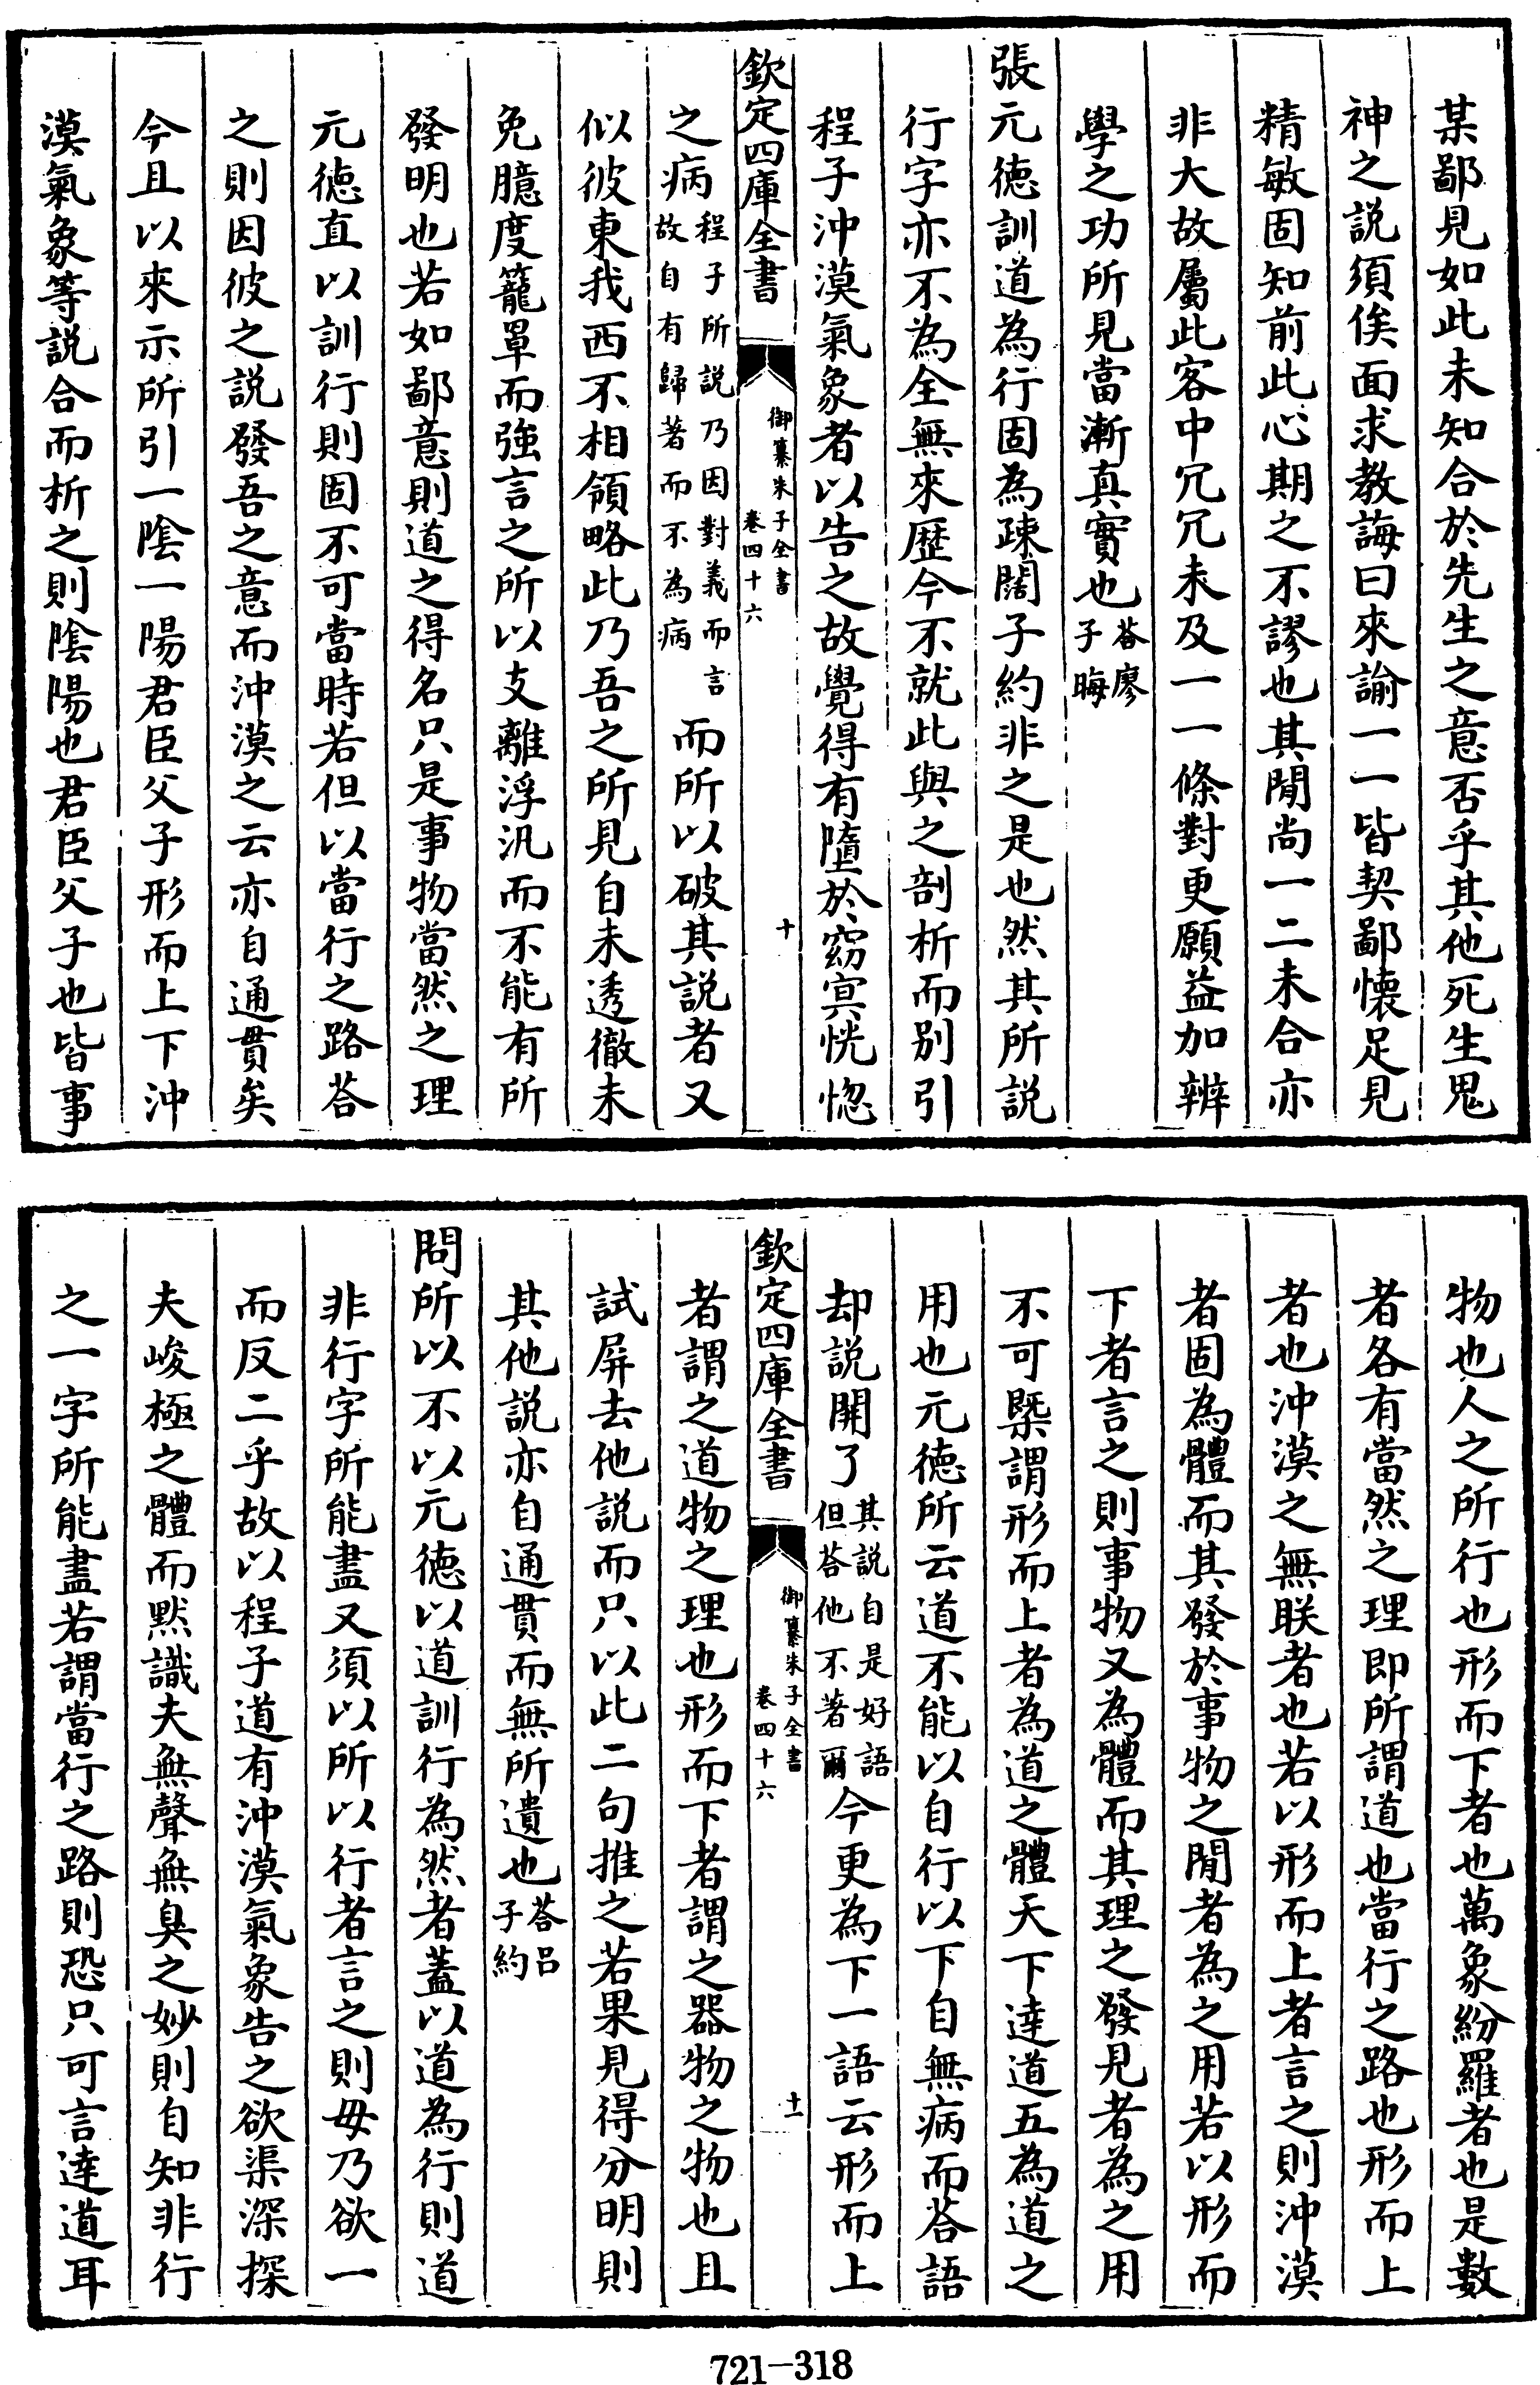 某鄙見如此未知合於先生之意否乎其他死生鬼
神之説須俟面求教誨曰來諭一一皆契鄙懐足見
精敏固知前此心期之不謬也其閒尚一二未合亦
非大故屬此客中冗冗未及一一條對更願益加辨
學之功所見當漸真實也荅廖子晦
張元徳訓道為行固為疎闊子約非之是也然其所説
行字亦不為全無來歴今不就此與之剖析而别引
程子沖漠氣象者以告之故覺得有墮於窈冥恍惚
欽定四庫全書 御纂朱子全書 卷四十六 十
之病程子所説乃因對義而言故自有歸著而不為病而所以破其説者又
似彼東我西不相領略此乃吾之所見自未透徹未
免臆度籠罩而強言之所以支離浮汎而不能有所
發明也若如鄙意則道之得名只是事物當然之理
元徳直以訓行則固不可當時若但以當行之路荅
之則因彼之説發吾之意而沖漠之云亦自通貫矣
今且以來示所引一隂一陽君臣父子形而上下沖
漠氣象等説合而析之則隂陽也君臣父子也皆事
物也人之所行也形而下者也萬象紛羅者也是數
者各有當然之理即所謂道也當行之路也形而上
者也沖漠之無朕者也若以形而上者言之則沖漠
者固為體而其發於事物之閒者為之用若以形而
下者言之則事物又為體而其理之發見者為之用
不可槩謂形而上者為道之體天下逹道五為道之
用也元徳所云道不能以自行以下自無病而荅語
却説開了其説自是好語但荅他不著爾今更為下一語云形而上
欽定四庫全書 御纂朱子全書 卷四十六 十一
者謂之道物之理也形而下者謂之器物之物也且
試屏去他説而只以此二句推之若果見得分明則
其他説亦自通貫而無所遺也荅呂子約
問所以不以元徳以道訓行為然者蓋以道為行則道
非行字所能盡又須以所以行者言之則毋乃欲一
而反二乎故以程子道有沖漠氣象告之欲渠深探
夫峻極之體而黙識夫無聲無臭之妙則自知非行
之一字所能盡若謂當行之路則恐只可言逹道耳
721-318